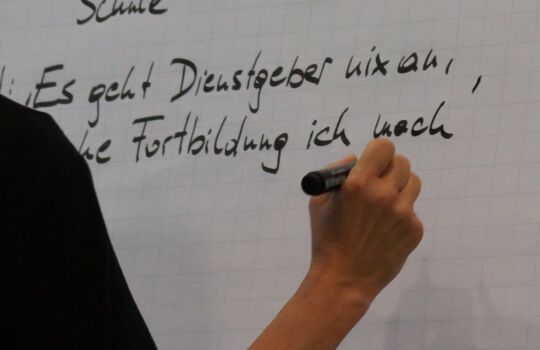 Schule
: „Es geht Dienstgeber nix an,
che Fortbildung ich mach